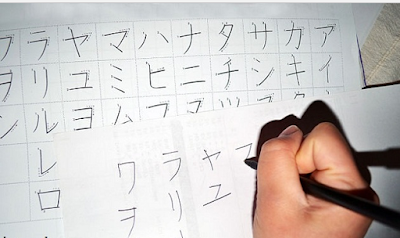 アイ
カキ
サシ
タチツ
ナニ
ハヒフ
マミム
ヤユヨ
ラリルレロ
ワヲン
ヤユ
ラリ
ワヲ